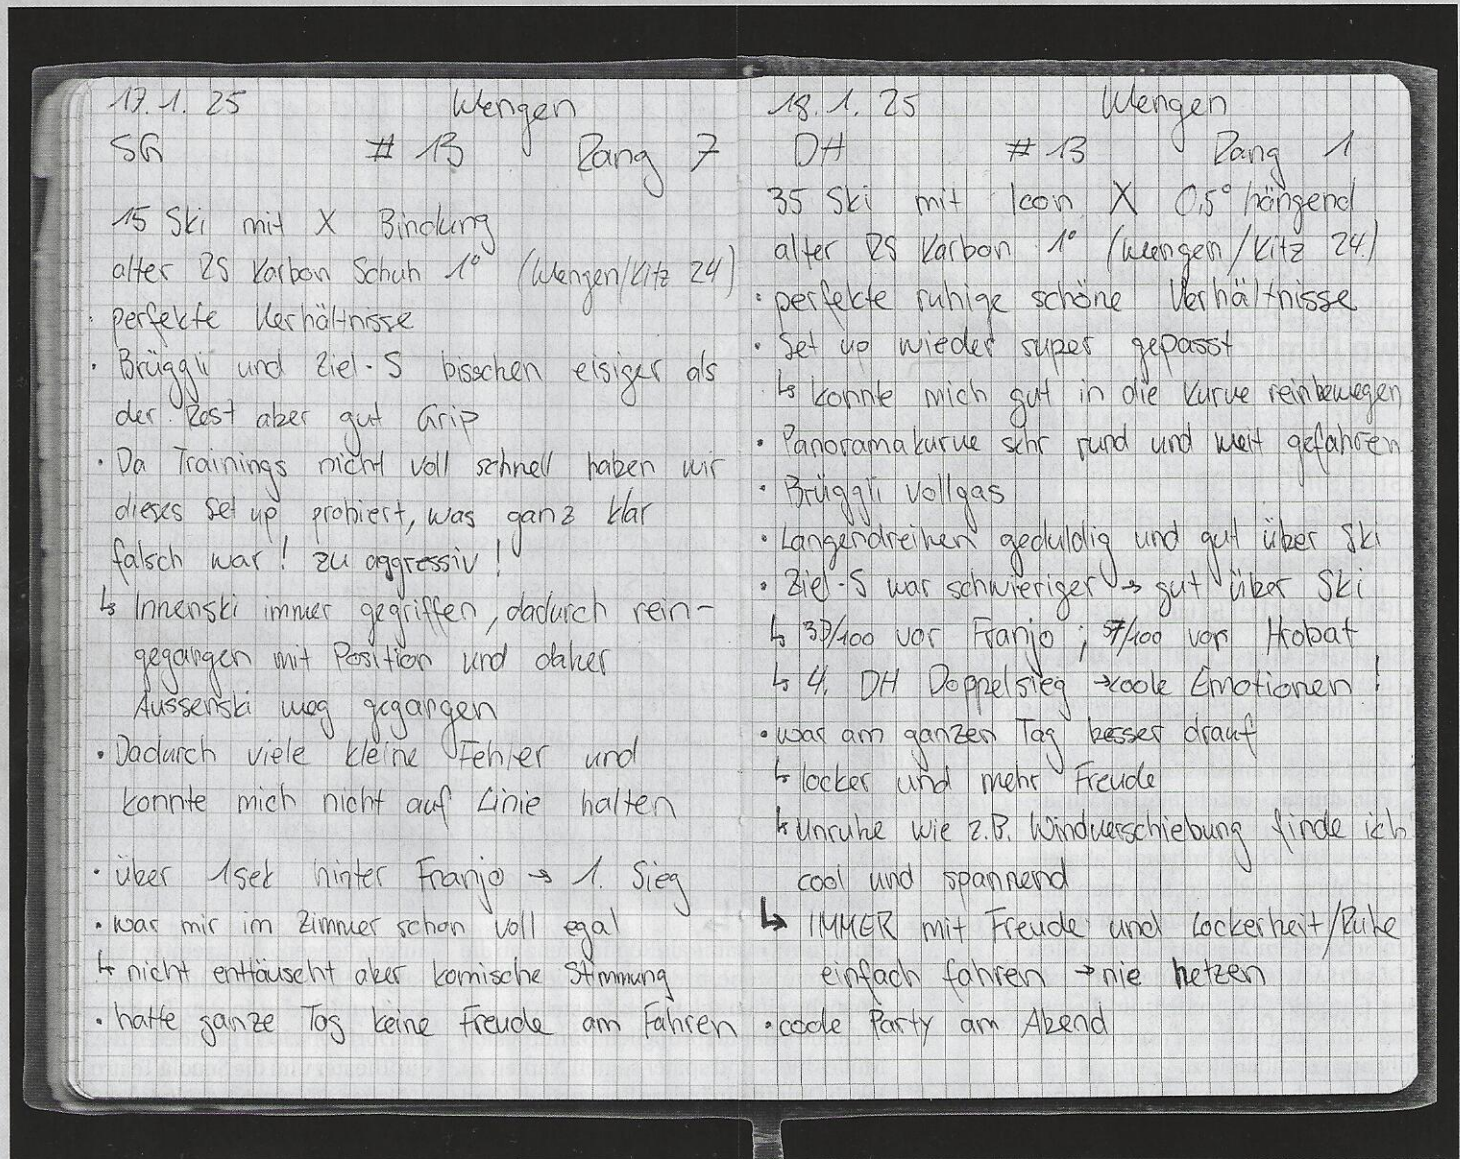 17.1.25 Wengen
SG # 13 Rang 7
15 Ski mit X Bindung
alter RS Karbon Schuh 1° (Wengen/Kitz 24)
· perfekte Verhältnisse
· Brüggli und Ziel-S bisschen eisiger als
der Rest aber gut Grip
· Da Trainings nicht voll schnell haben wir
dieses Set up probiert, was ganz klar
falsch war! zu aggressiv!
↳ Innenski immer gegriffen, dadurch rein-
gegangen mit Position und daher
Aussenski weg gegangen
· Dadurch viele kleine Fehler und
konnte mich nicht auf Linie halten
· über 1sek hinter Franjo → 1. Sieg
· war mir im Zimmer schon voll egal
↳ nicht enttäuscht aber komische Stimmung
· hatte ganze Tag keine Freude am Fahren
18.1.25 Wengen
DH # 13 Rang 1
35 Ski mit Icon X 0,5° hängend
alter RS Karbon 1° (Wengen/Kitz 24.)
· perfekte ruhige schöne Verhältnisse
· Set up wieder super gepasst
↳ konnte mich gut in die Kurve reinbewegen
· Panoramakurve sehr rund und weit gefahren
· Brüggli vollgas
· Langendreihen geduldig und gut über Ski
· Ziel-S war schwieriger → gut über Ski
↳ 37/100 vor Franjo ; 57/100 vor Hrobat
↳ 4. DH Doppelsieg → coole Emotionen!
· war am ganzen Tag besser drauf
↳ locker und mehr Freude
↳ Unruhe wie z.B. Windverschiebung finde ich
cool und spannend
↳ IMMER mit Freude und Lockerheit/Ruhe
einfach fahren → nie hetzen
· coole Party am Abend